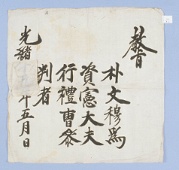 敎旨
朴文穆爲
資憲大夫
行禮曹參
判者
光緖
年五月日